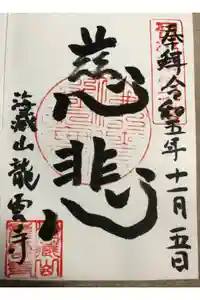 奉拜 令和五年 十一月 五日
慈悲
海蔵山 龍雲寺